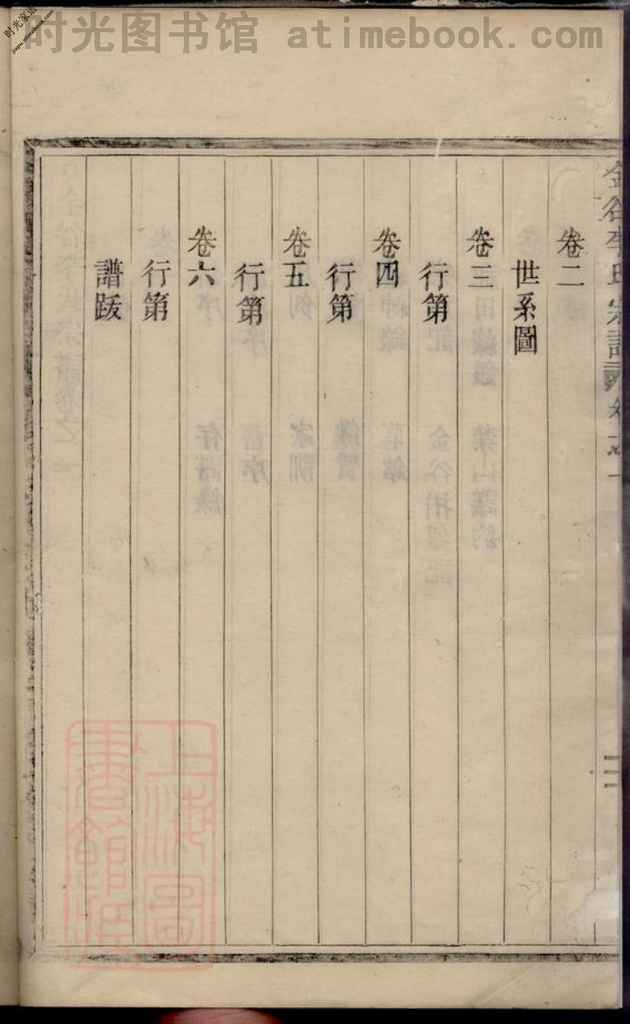 时光图书馆 atimebook.com
金谷李氏宗譜
卷二
世系圖
卷三
行第
卷四
行第
卷五
行第
卷六
行第
譜跋
上海圖
書館藏